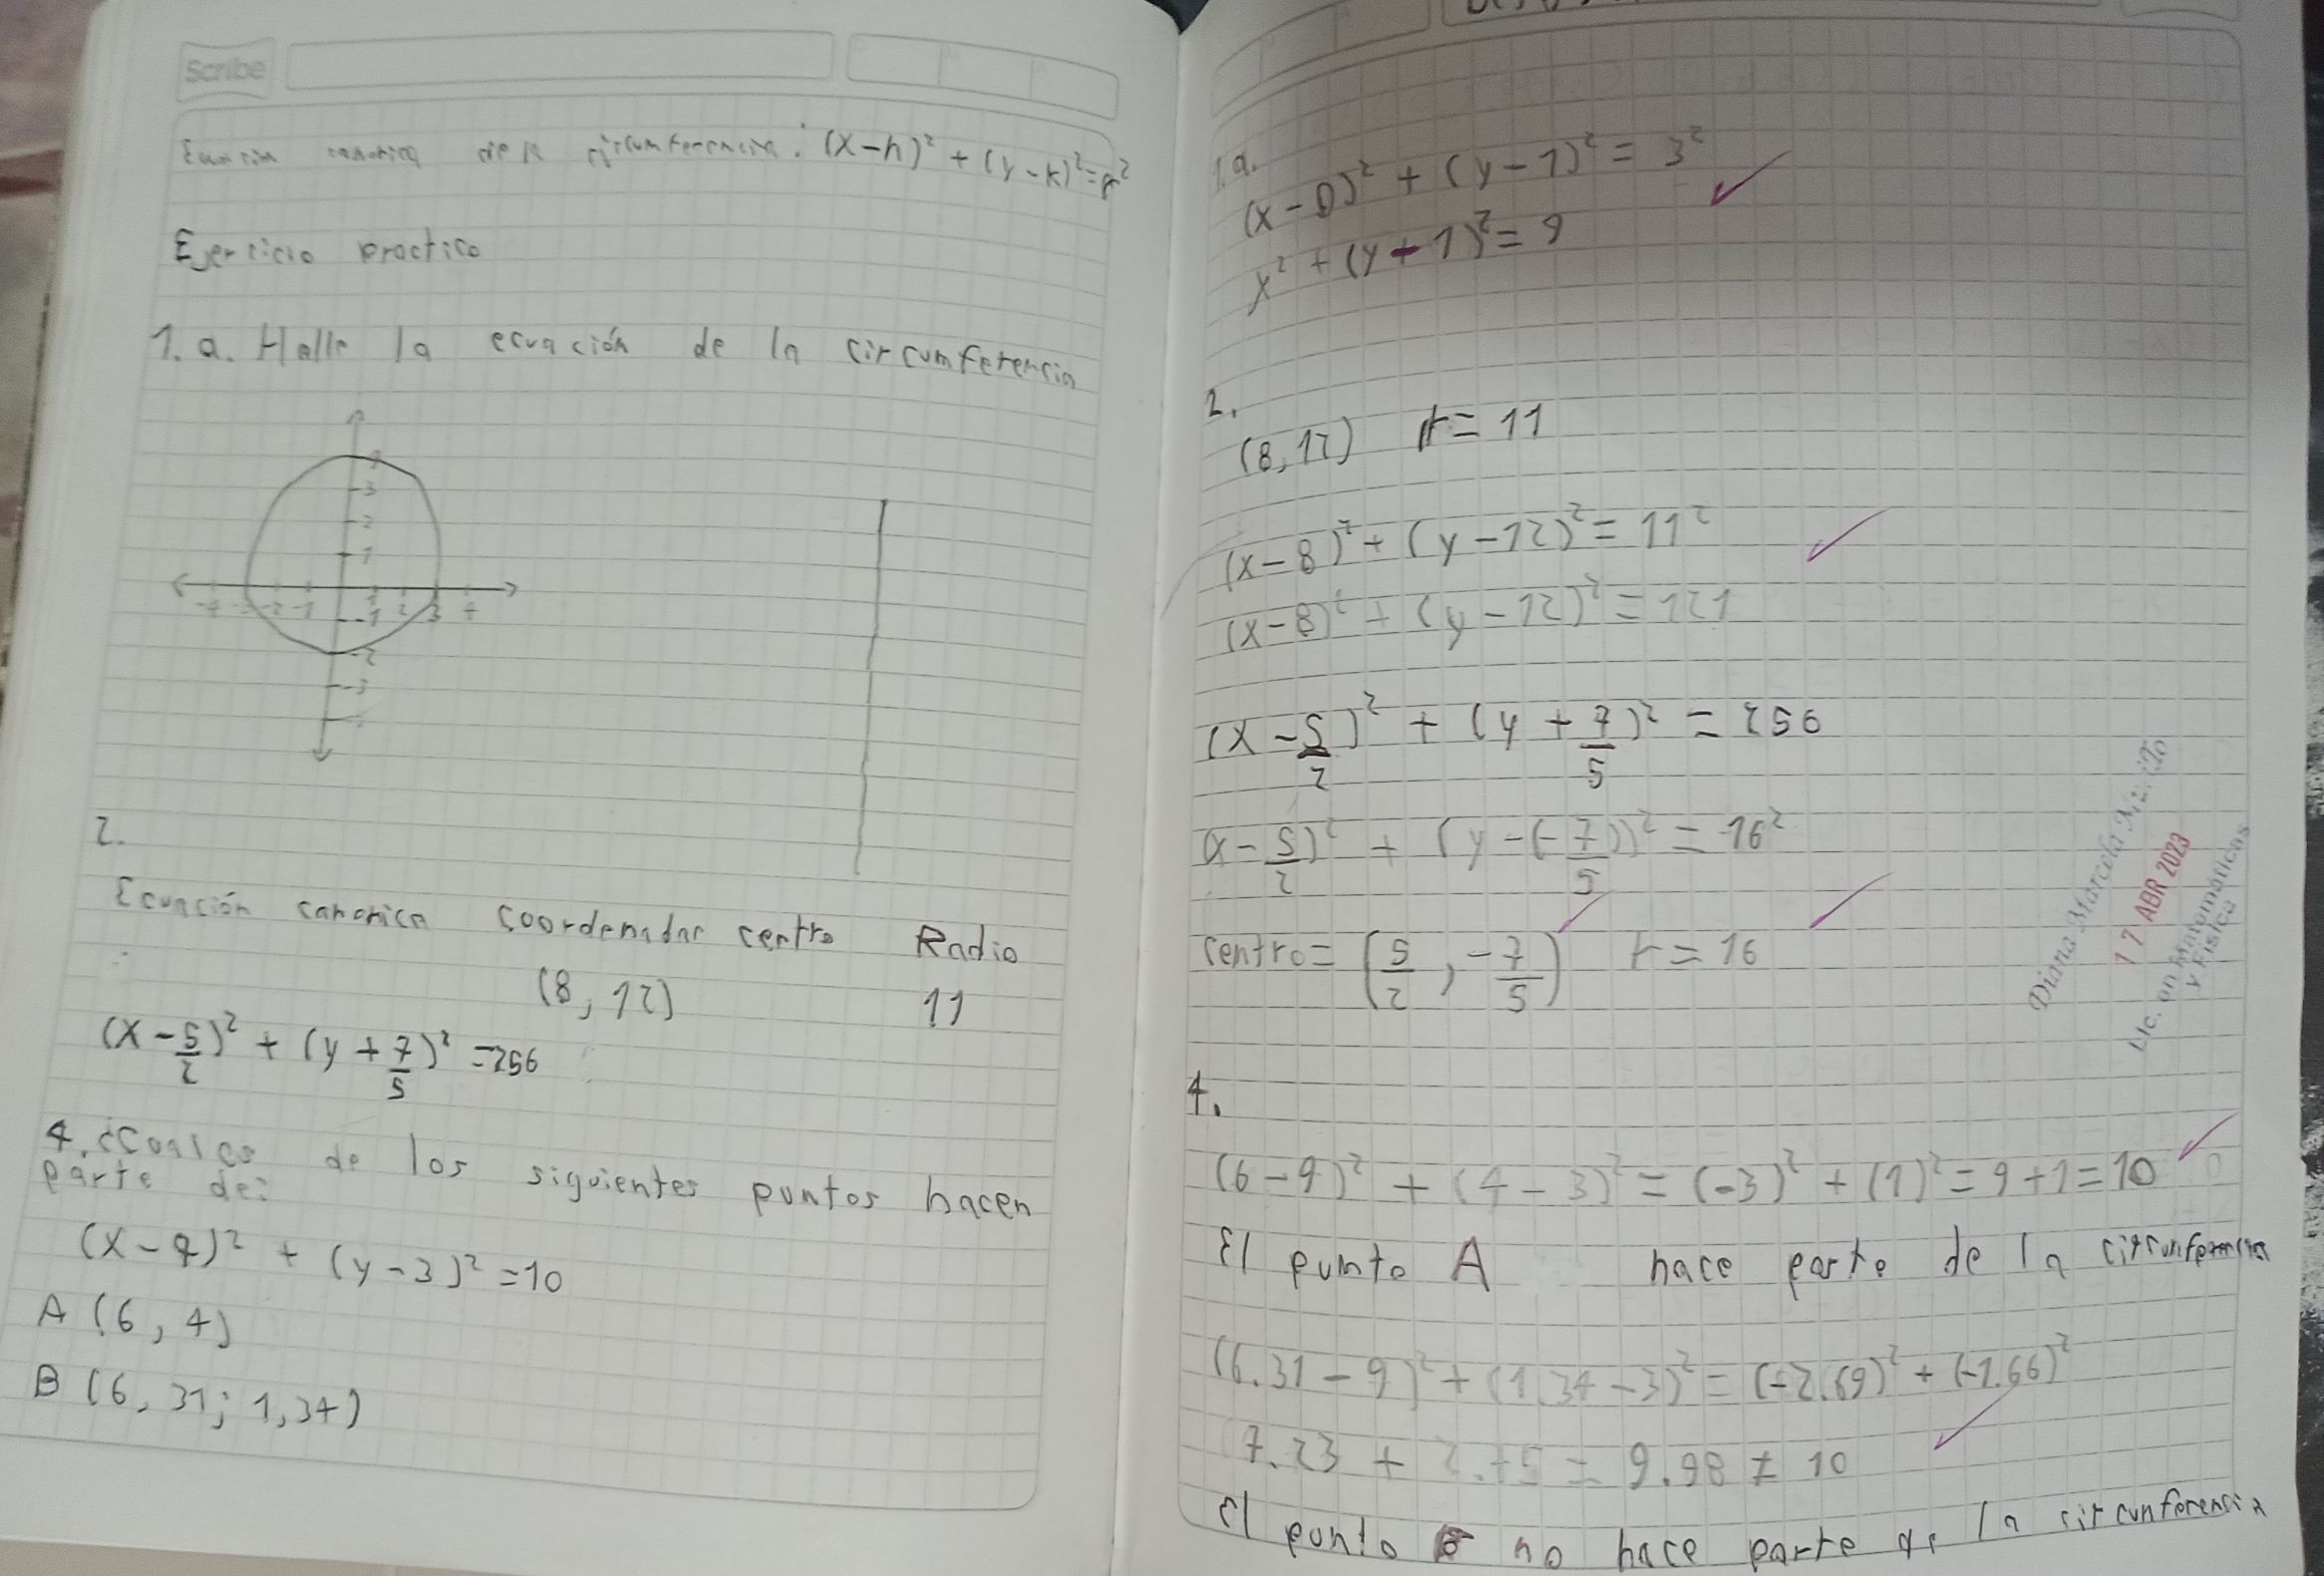 Scribe
Ecuación canonica de la circumferencia: (x-h)² + (y-k)² = r²
Ejercicio practico
1. a. Halle la ecuación de la circumferencia
4
3
2
1
-4 -3 -2 -1 1 2 3 4
-1
-2
-3
2.
Ecuación canonica coordenadas centro Radio
(8, 12) 11
(x - 5/2)² + (y + 7/5)² = 256
4. ¿Cuales de los siguientes puntos hacen
parte de:
(x-9)² + (y-3)² = 10
A (6, 4)
B (6, 31; 1,34)
1.a.
(x-0)² + (y-1)² = 3²
x² + (y-1)² = 9
2.
(8, 12) r = 11
(x-8)² + (y-12)² = 11²
(x-8)² + (y-12)² = 121
(x - 5/2)² + (y + 7/5)² = 256
(x - 5/2)² + (y - (-7/5))² = 16²
centro = (5/2, -7/5) r = 16
Diana Marcela
17 ABR 2023
Lic. en Matemáticas
y Física
4.
(6-9)² + (4-3)² = (-3)² + (1)² = 9+1 = 10
El punto A hace parte de la circunferencia
(6.31-9)² + (1.34-3)² = (-2.69)² + (-1.66)²
7.23 + 2.75 = 9.98 ≠ 10
El punto B no hace parte de la circunferencia